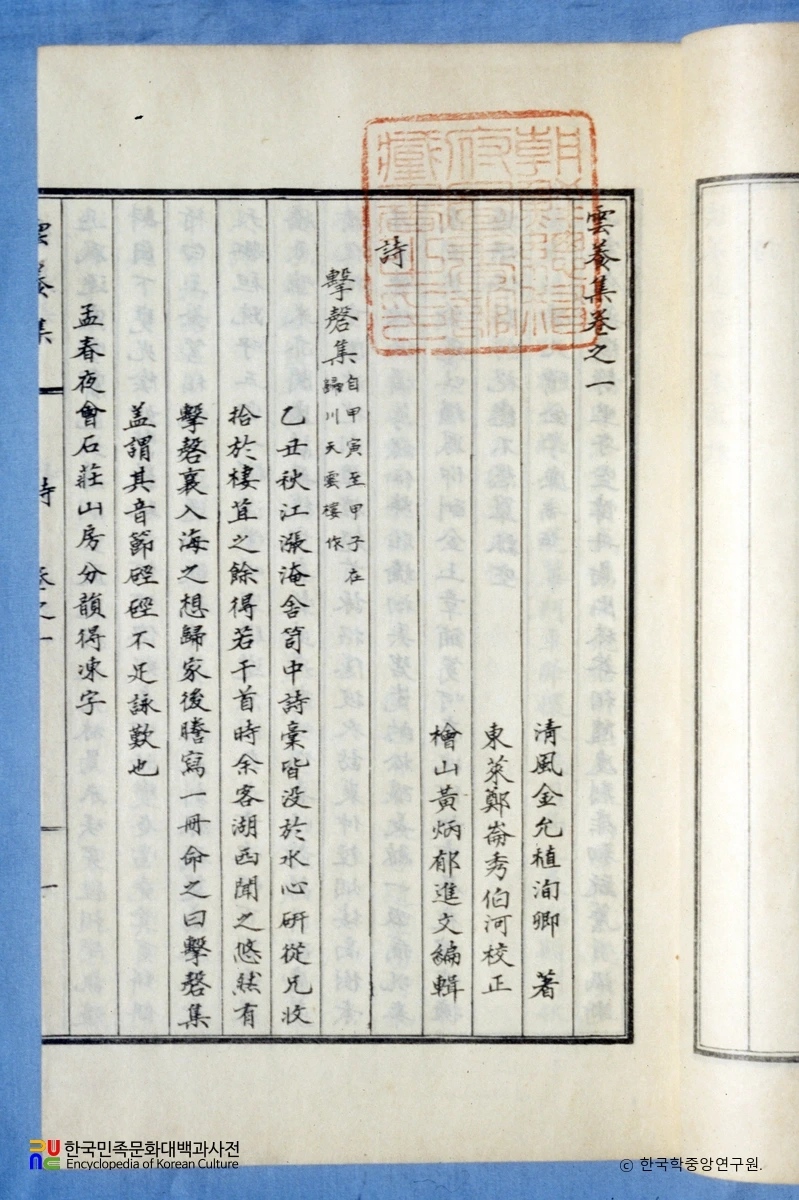 雲養集卷之一
清風金允植洵卿 著
東萊鄭崙秀伯河校正
檜山黃炳郁進文編輯
詩
擊磬集自甲寅至甲子在
歸川天雲樓作
乙丑秋江漲淹舍笥中詩稾皆没於水心研從兄收
拾於棲苴之餘得若干首時余客湖西聞之悠然有
擊磬襄入海之想歸家後謄寫一冊命之曰擊磬集
盖謂其音節硜硜不足詠歎也
孟春夜會石莊山房分韻得凍字
雲養集 詩 卷之一 一
한국민족문화대백과사전
Encyclopedia of Korean Culture
© 한국학중앙연구원.